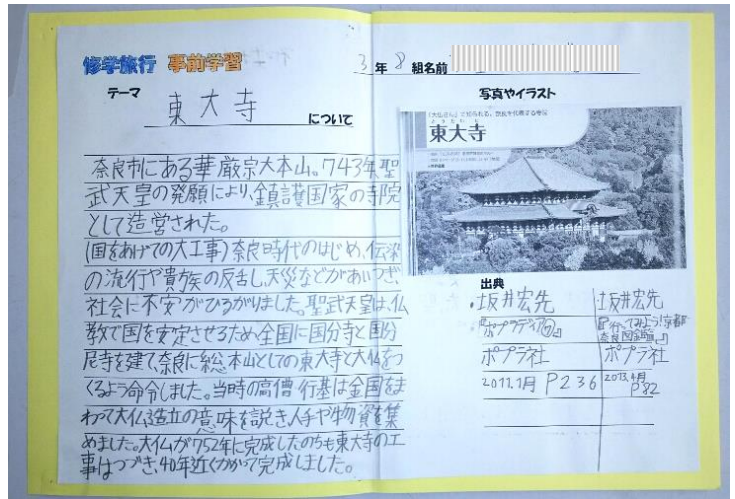 修学旅行 事前学習
3年 8組名前
テーマ
東大寺 について
奈良市にある華厳宗大本山。743年聖
武天皇の発願により、鎮護国家の寺院
として造営された。
(国をあげての大工事)奈良時代のはじめ、伝染
の流行や貴族の反乱、天災などがあいつぎ、
社会に不安がひろがりました。聖武天皇は、仏
教で国を安定させるため、全国に国分寺と国分
尼寺を建て、奈良に総本山としての東大寺と大仏をつ
くるよう命令しました。当時の高僧 行基は全国をま
わって大仏造立の意味を説き人手や物資を集
めました。大仏が752年に完成したのちも東大寺の工
事はつづき、40年近くかかって完成しました。
写真やイラスト
東大寺
出典
・坂井宏先
『ポプラディア
ポプラ社
2011.1月 P236
坂井宏先
『行ってみよう!京都・
奈良図鑑』
ポプラ社
2013.4月
P82